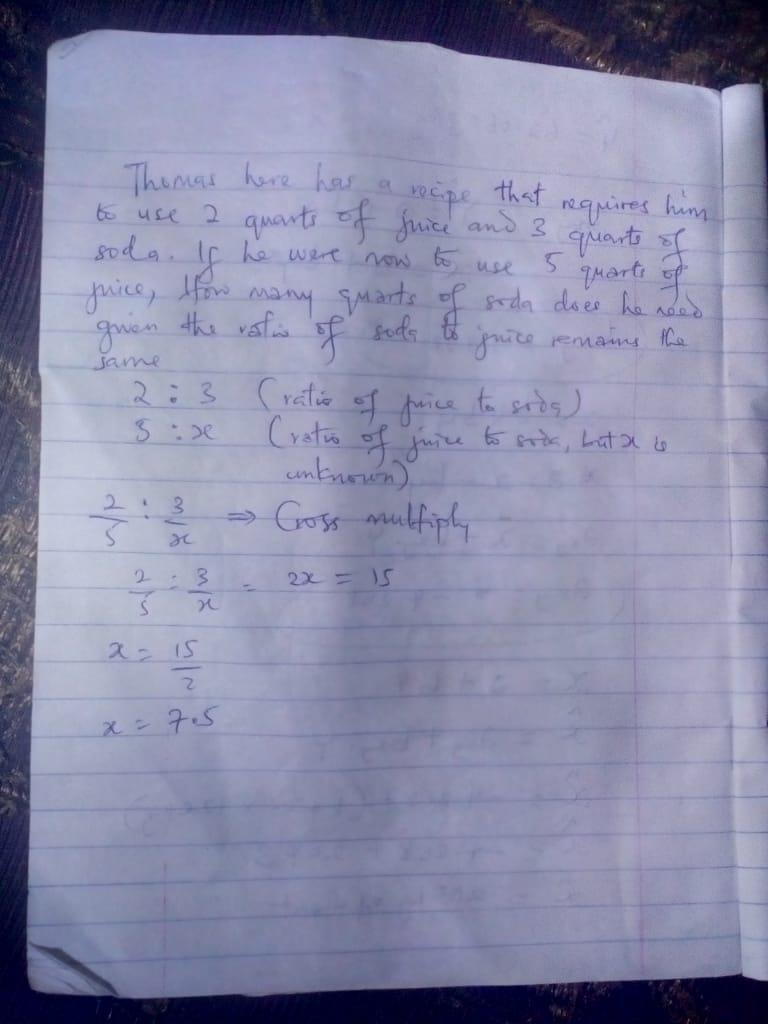 Thomas here has a recipe that requires him
to use 2 quarts of juice and 3 quarts of
soda. If he were now to use 5 quarts of
juice, How many quarts of soda does he need
given the ratio of soda to juice remains the
same
2 : 3 (ratio of juice to soda)
5 : x (ratio of juice to soda, but x is
unknown)
2/5 : 3/x ⇒ Cross multiply
2/5 = 3/x = 2x = 15
x = 15/2
x = 7.5